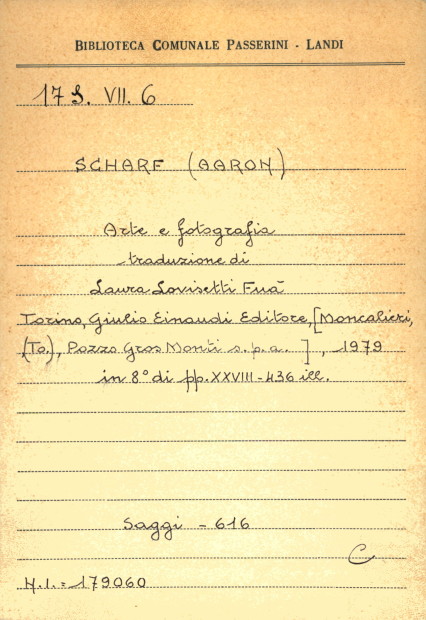 BIBLIOTECA COMUNALE PASSERINI - LANDI
17 S. VII. 6
SCHARF (AARON)
Arte e fotografia
traduzione di
Laura Lovisetti Fuà
Torino, Giulio Einaudi Editore, [Moncalieri,
(To.), Pozzo Gros Monti s.p.a. ], 1979
in 8° di pp. XXVIII-436 ill.
Saggi - 616
C
N.I.= 179060